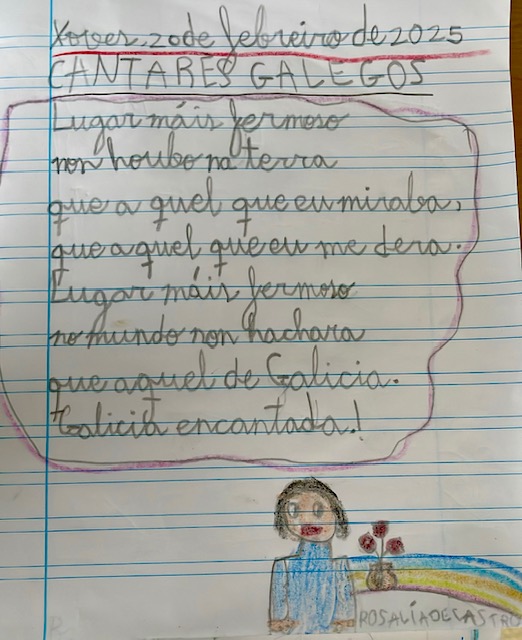 Xoves, 20 de febreiro de 2025
CANTARES GALEGOS
Lugar máis fermoso
non houbo na terra
que a quel que eu miraba,
que aquel que eu me dera.
Lugar máis fermoso
no mundo non hachara
que aquel de Galicia.
Galicia encantada!
ROSALÍA DE CASTRO